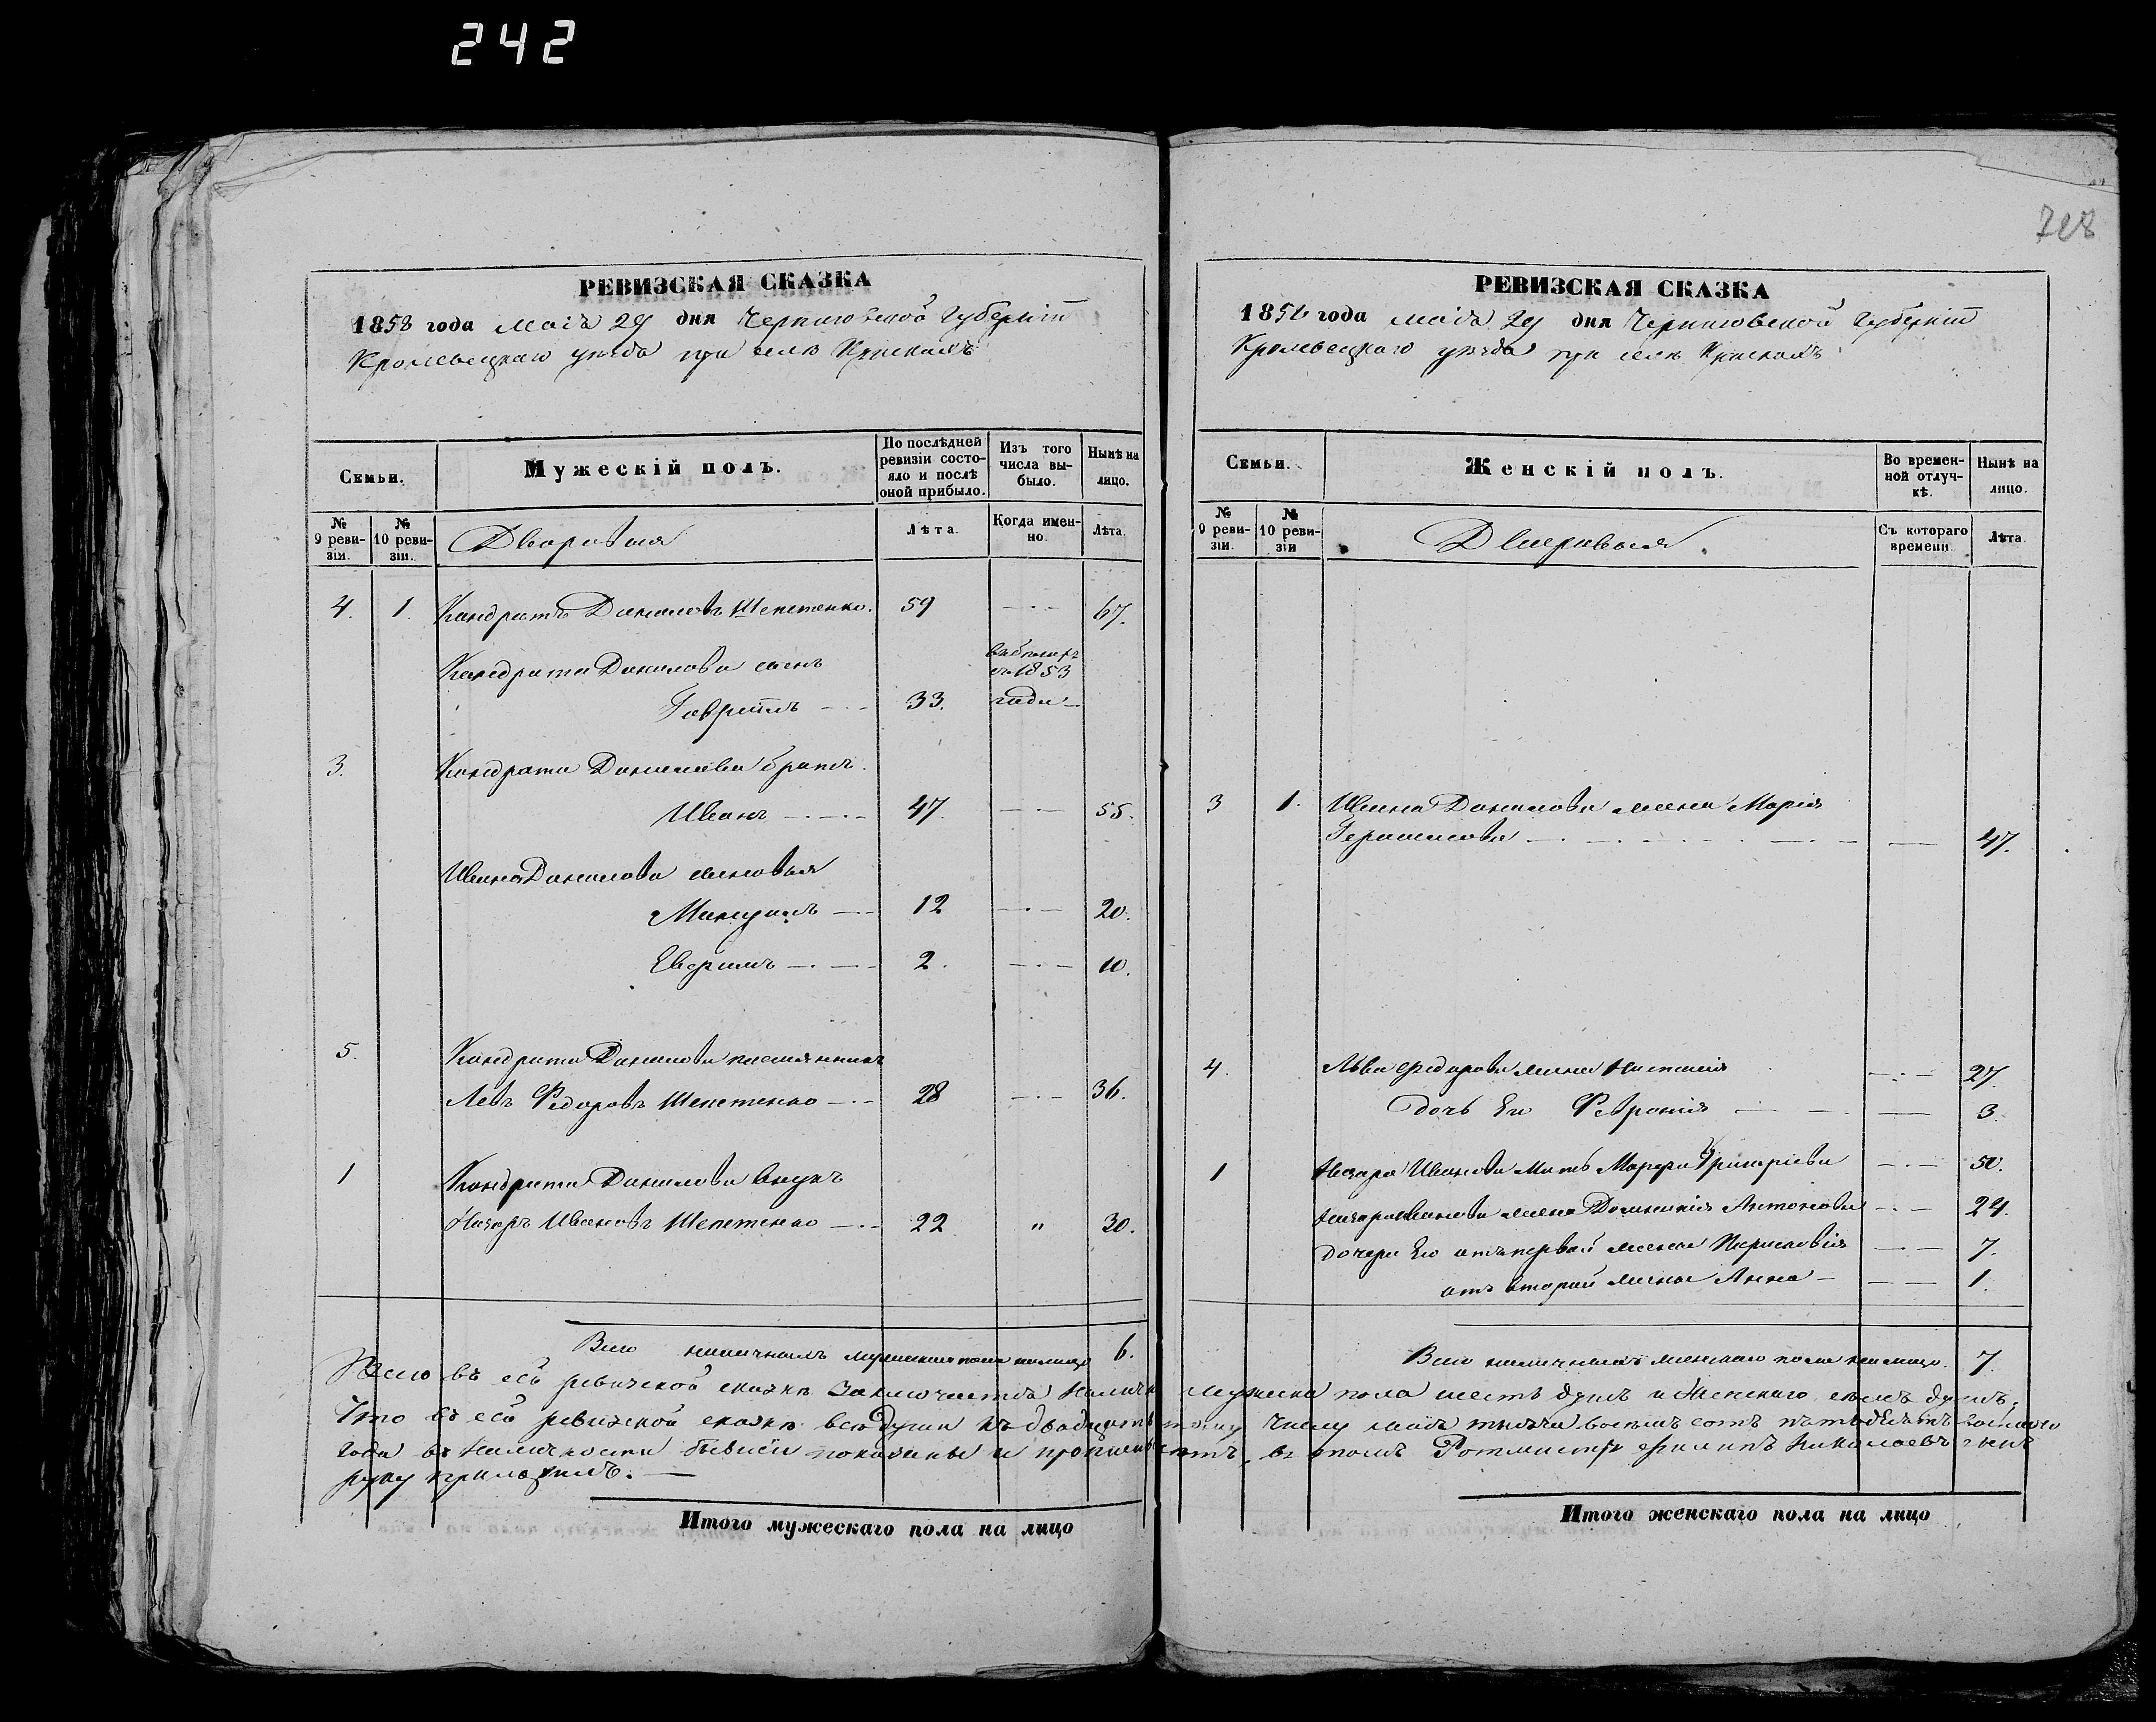 242
728
РЕВИЗСКАЯ СКАЗКА
1858 года Маія 29 дня Черниговской Губерніи
Кролевецкаго уѣзда при селѣ
Семьи.
№ 9 ревизіи.
№ 10 ревизіи.
Мужескій полъ.
По послѣдней ревизіи состояло и послѣ оной прибыло.
Изъ того числа выбыло.
Нынѣ на лицо.
Дворовыя
Лѣта.
Когда именно.
Лѣта.
4. 1. Кондратъ Даниловъ Шепетенко. 59 67.
Кондрата Данилова сынъ
Гавріилъ 33. въ 1853 года
3. Кондрата Данилова братъ
Иванъ 47. 55.
Ивана Данилова сыновья
12 20.
2. 10.
5. Кондрата Данилова племянникъ
Левъ Федоровъ Шепетенко 28 36.
1 Кондрата Данилова внукъ
Назаръ Ивановъ Шепетенко 22 " 30.
Всего наличныхъ мужескаго пола на лицо 6.
РЕВИЗСКАЯ СКАЗКА
1858 года Маія 29 дня Черниговской Губерніи
Кролевецкаго уѣзда при селѣ
Семьи.
№ 9 ревизіи.
№ 10 ревизіи
Женскій полъ.
Во временной отлучкѣ.
Нынѣ на лицо.
Дворовыя.
Съ котораго времени.
Лѣта
3 1. Ивана Данилова жена Марія
Герасимова 47.
4. Льва Федорова жена Настасія 27.
Дочь Его Февронія 3.
1 Назара Иванова мать Марфа Григоріева 50.
Назара Иванова жена Домникія Антонова 24.
Дочери Его отъ первой жены Параскевія 7.
отъ второй жены Анна 1.
Всего наличныхъ женскаго пола на лицо. 7.
Всего въ сей ревизской сказкѣ заключается мужеска пола шесть душъ и Женскаго семь душъ;
Что въ сей ревизской сказкѣ всѣ души къ двадцать числу маія тысяча восемь сотъ пятьдесятъ восьмаго
года въ наличности бывшіи показаны и въ томъ Ротмистръ Филиппъ Николаевъ сынъ
руку приложилъ.
Итого мужескаго пола на лицо
Итого женскаго пола на лицо